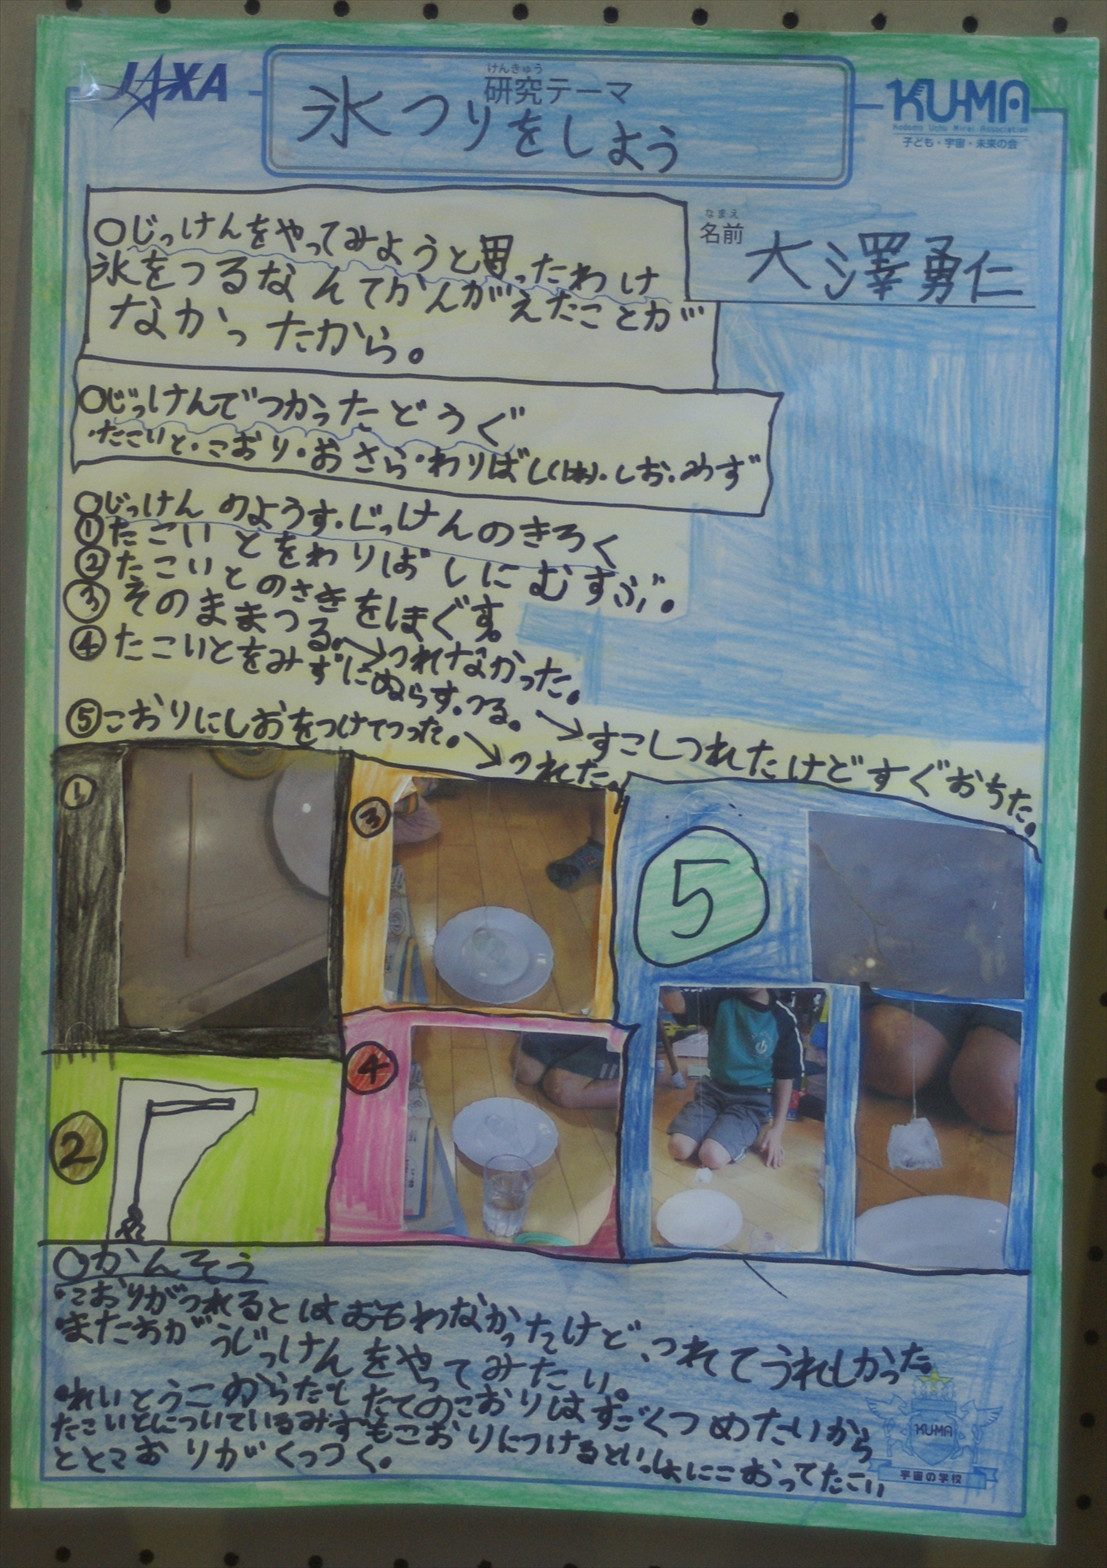 JAXA
けんきゅう
研究テーマ
氷つりをしよう
KUMA
子ども・宇宙・未来の会
なまえ
名前
大澤勇仁
○じっけんをやってみようと思ったわけ
氷をつるなんてかんがえたことが
なかったから。
○じっけんでつかったどうぐ
・たこいと・こおり・おさら・わりばし(は)・しお・みず
○じっけんのようす・じっけんのきろく
①たこいとをわりばしにむすぶ。
②たこいとのさきをほぐす。
③そのままつる。→つれなかった。
④たこいとをみずにぬらす。つる。→すこしつれたけどすぐおちた。
⑤こおりにしおをつけてつった。→つれた。
①
③
5
②
④
○かんそう
・こおりがつれるとはおもわなかったけど、つれてうれしかった。
またちがうじっけんをやってみたい。
・れいとうこからだしたてのこおりはすごくつめたいから
たこいとについているみずもこおりにつけるといっしょにこおってたこい
ととこおりがくっつく。
KUMA
宇宙の学校